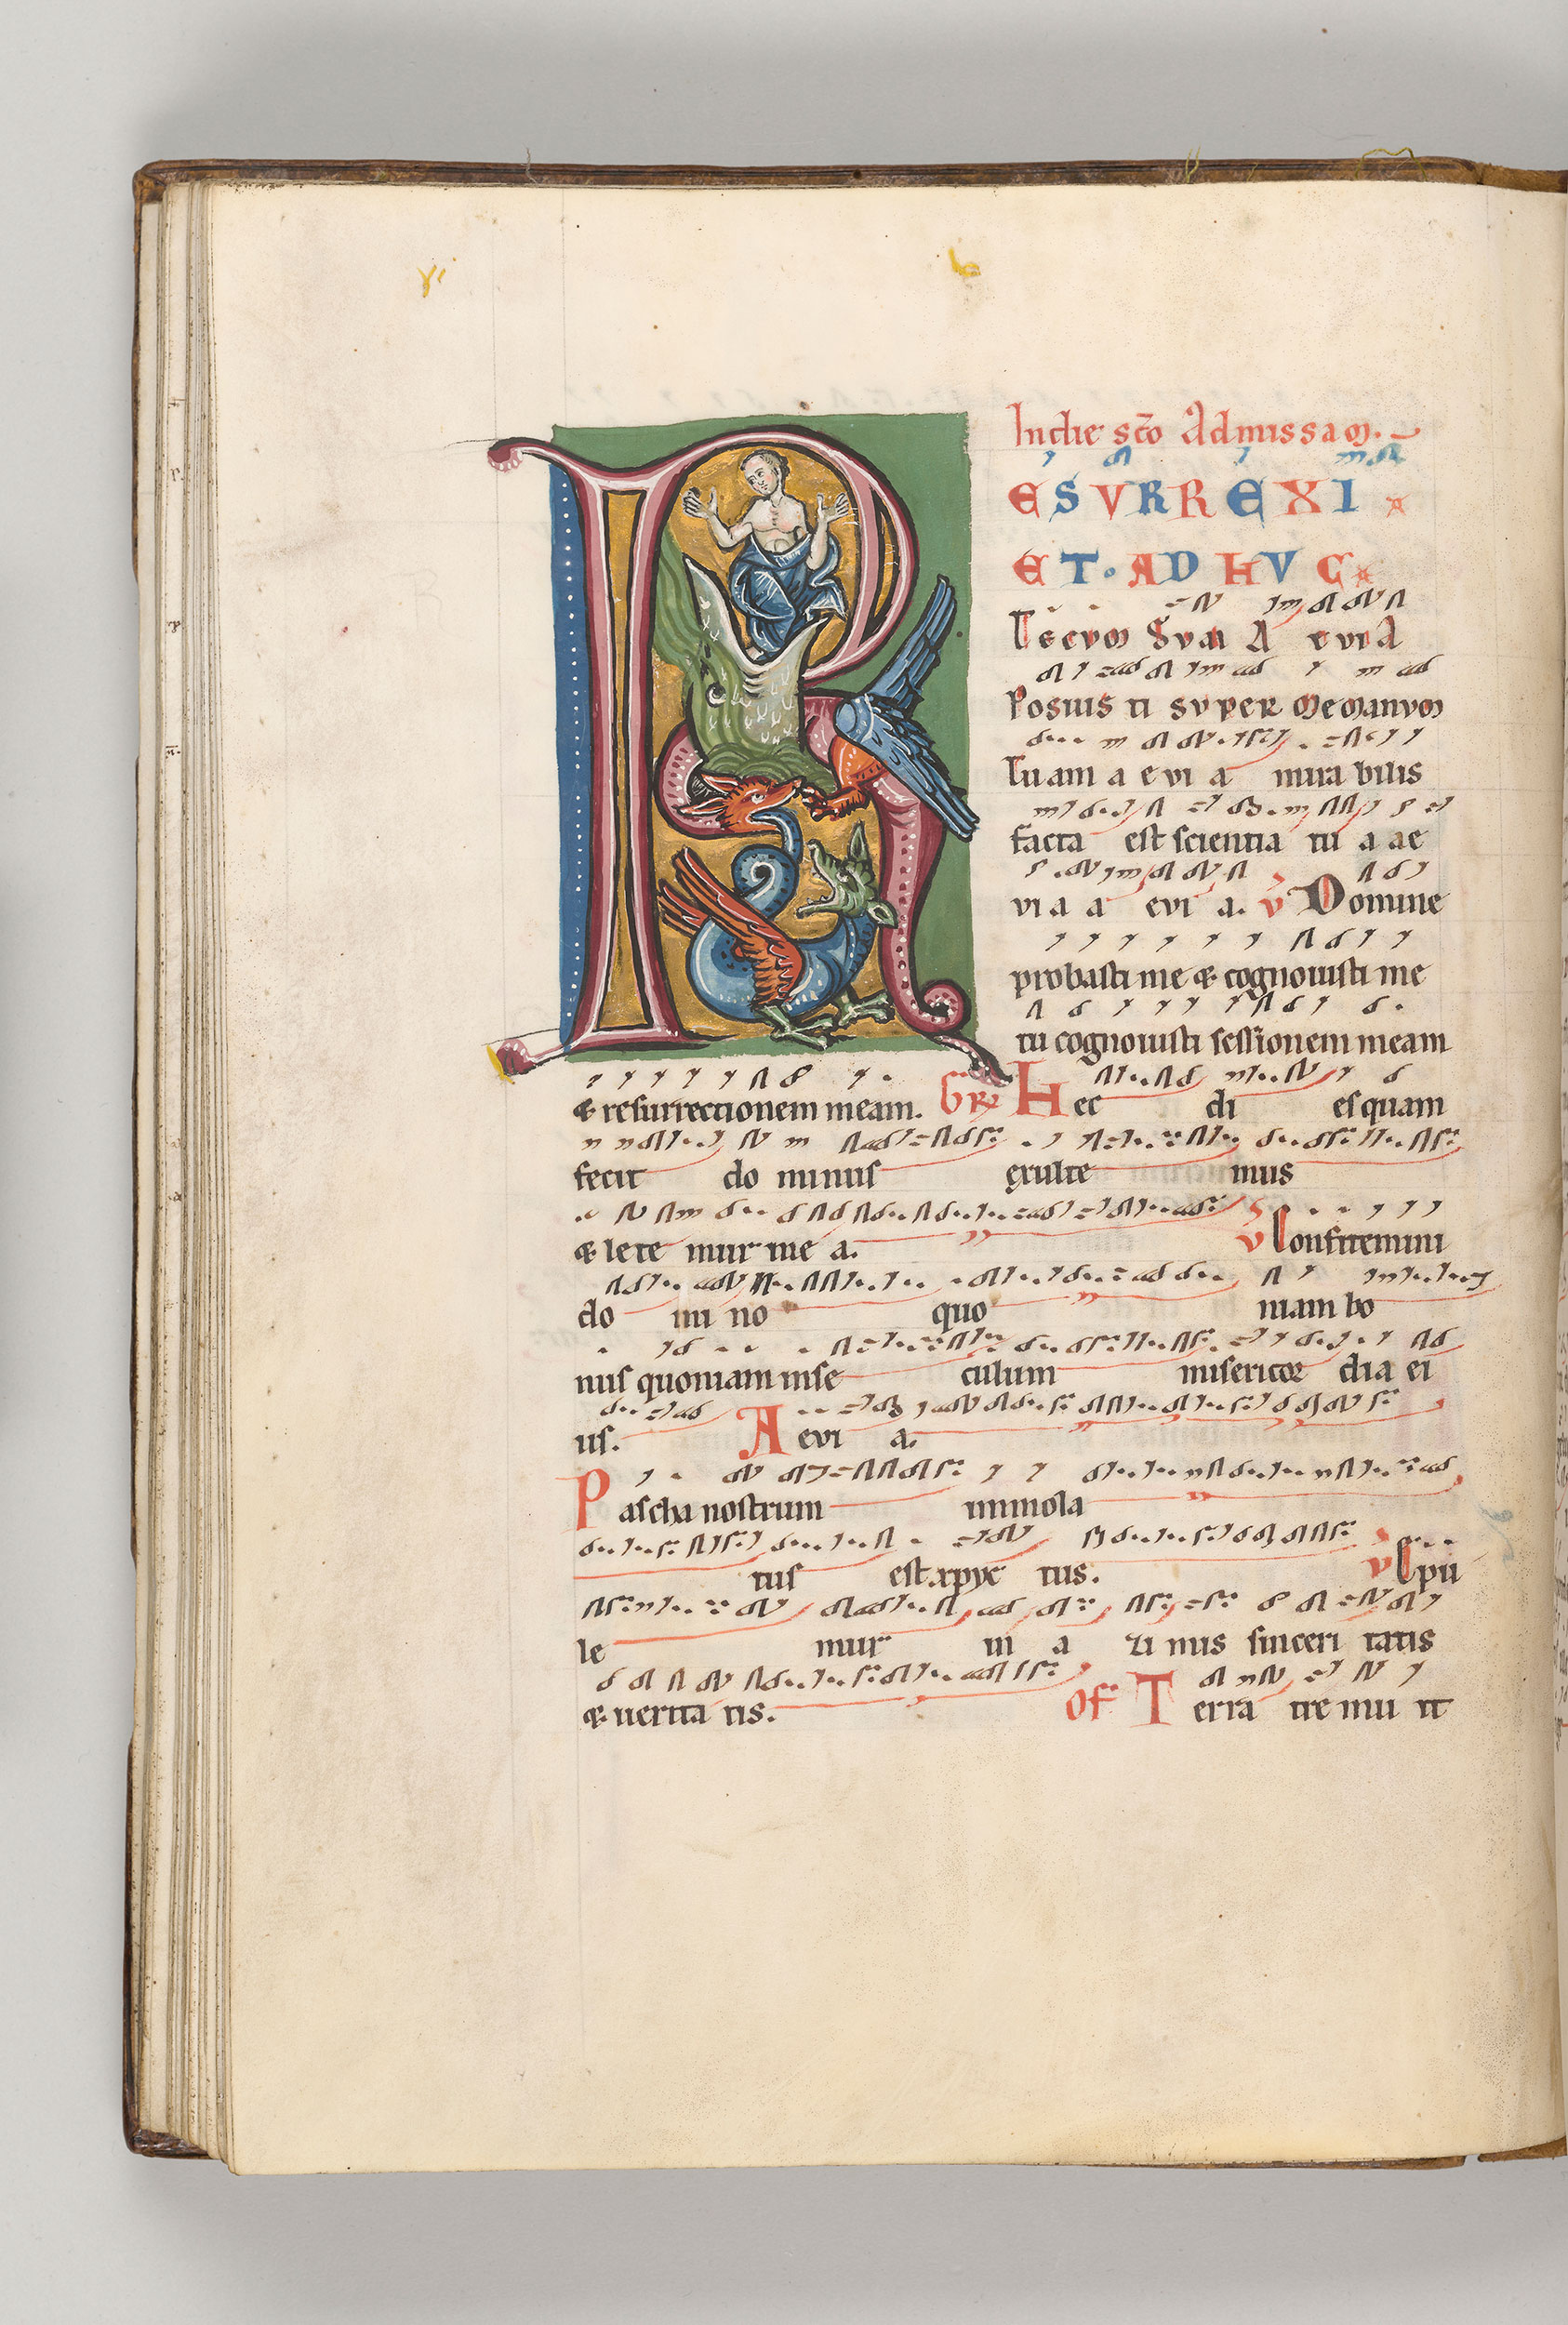 In die sc̄o Ad missam.
R ESVRREXI
ET· ADHVC
Tecum Sum A evia
Posuisti super me manum
Tuam a e vi a mirabilis
facta est scientia tu a ae
via a evi a. v Domine
probasti me & cognouisti me
tu cognouisti sessionem meam
& resurrectionem meam. Gr̄ Hec di es quam
fecit do minus exulte mus
& lete mur in e a. v Confitemini
do mi no quo niam bo
nus quoniam in se culum misericor dia ei
us. A evi a.
Pascha nostrum immola
tus est xpyc tus. v Epu
le mur in a zi mis sinceri tatis
& uerita tis. Of Terra tre mu it